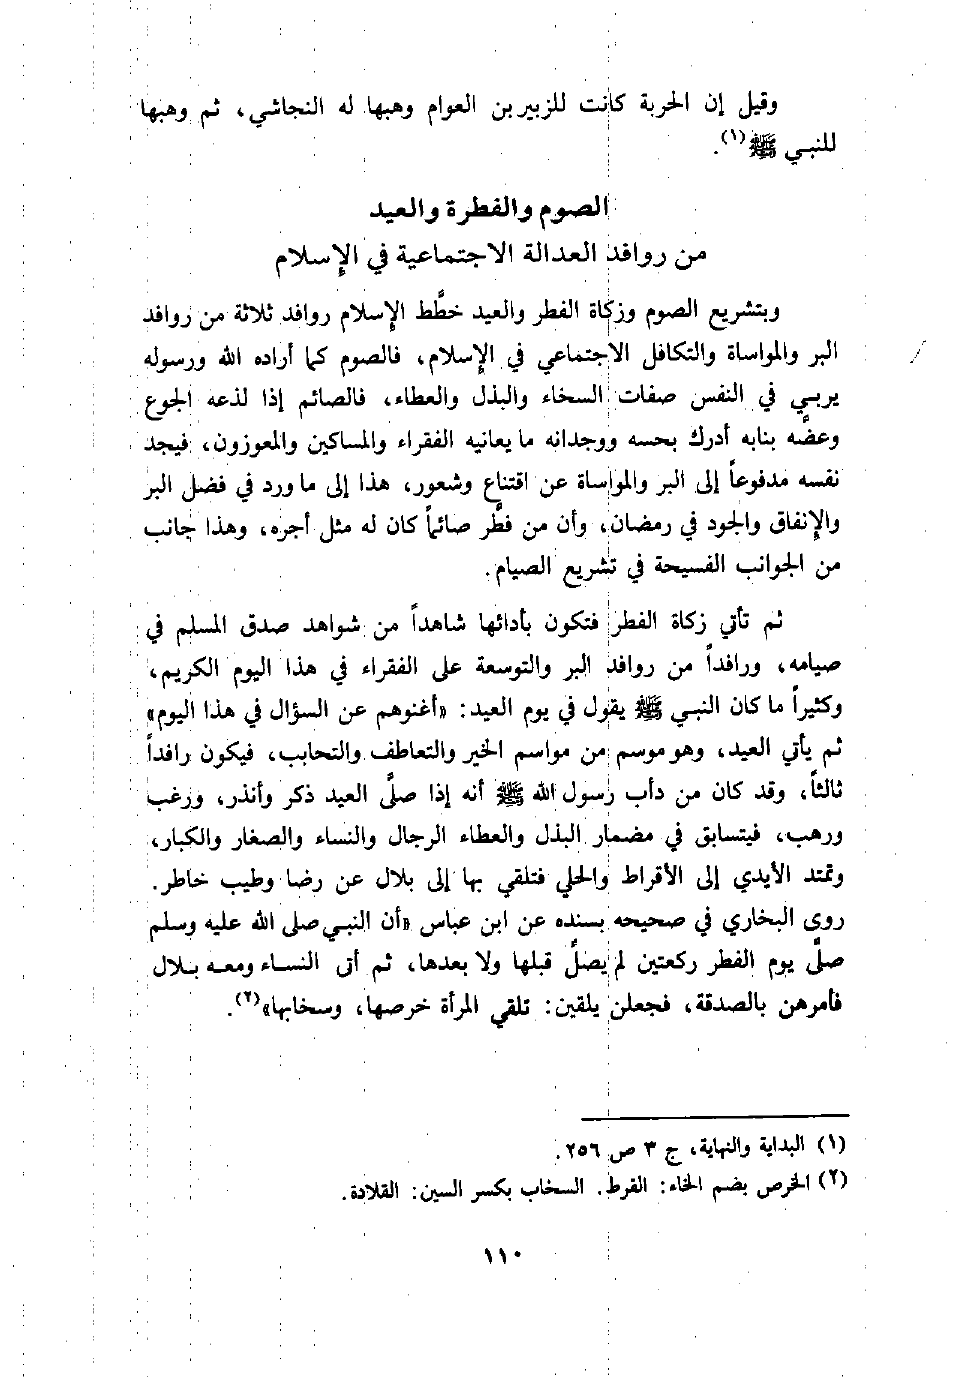 وقيل إن الحربة كانت للزبير بن العوام وهبها له النجاشي، ثم وهبها
للنبي ﷺ(١).
الصوم والفطرة والعيد
من روافد العدالة الاجتماعية في الإسلام
وبتشريع الصوم وزكاة الفطر والعيد خطَّط الإسلام روافد ثلاثة من روافد
البر والمواساة والتكافل الاجتماعي في الإسلام، فالصوم كما أراده الله ورسوله
يربي في النفس صفات السخاء والبذل والعطاء، فالصائم إذا لذعه الجوع
وعضَّه بنابه أدرك بحسه ووجدانه ما يعانيه الفقراء والمساكين والمعوزون، فيجد
نفسه مدفوعاً إلى البر والمواساة عن اقتناعٍ وشعور، هذا إلى ما ورد في فضل البر
والإنفاق والجود في رمضان، وأن من فطَّر صائماً كان له مثل أجره، وهذا جانب
من الجوانب الفسيحة في تشريع الصيام.
ثم تأتي زكاة الفطر فتكون بأدائها شاهداً من شواهد صدق المسلم في
صيامه، ورافداً من روافد البر والتوسعة على الفقراء في هذا اليوم الكريم،
وكثيراً ما كان النبي ﷺ يقول في يوم العيد: «أغنوهم عن السؤال في هذا اليوم»
ثم يأتي العيد، وهو موسم من مواسم الخير والتعاطف والتحابب، فيكون رافداً
ثالثاً، وقد كان من دأب رسول الله ﷺ أنه إذا صلَّى العيد ذكر وأنذر، ورغب
ورهب، فيتسابق في مضمار البذل والعطاء الرجال والنساء والصغار والكبار،
وتمتد الأيدي إلى الأقراط والحلي فتلقي بها إلى بلال عن رضا وطيب خاطر.
روى البخاري في صحيحه بسنده عن ابن عباس «أن النبي صلى الله عليه وسلم
صلَّى يوم الفطر ركعتين لم يصلِّ قبلها ولا بعدها، ثم أتى النساء ومعه بلال
فأمرهن بالصدقة، فجعلن يلقين: تلقي المرأة خرصها، وسخابها»(٢).
(١) البداية والنهاية، ج ٣ ص ٢٥٦.
(٢) الخرص بضم الخاء: القرط. السخاب بكسر السين: القلادة.
١١٠